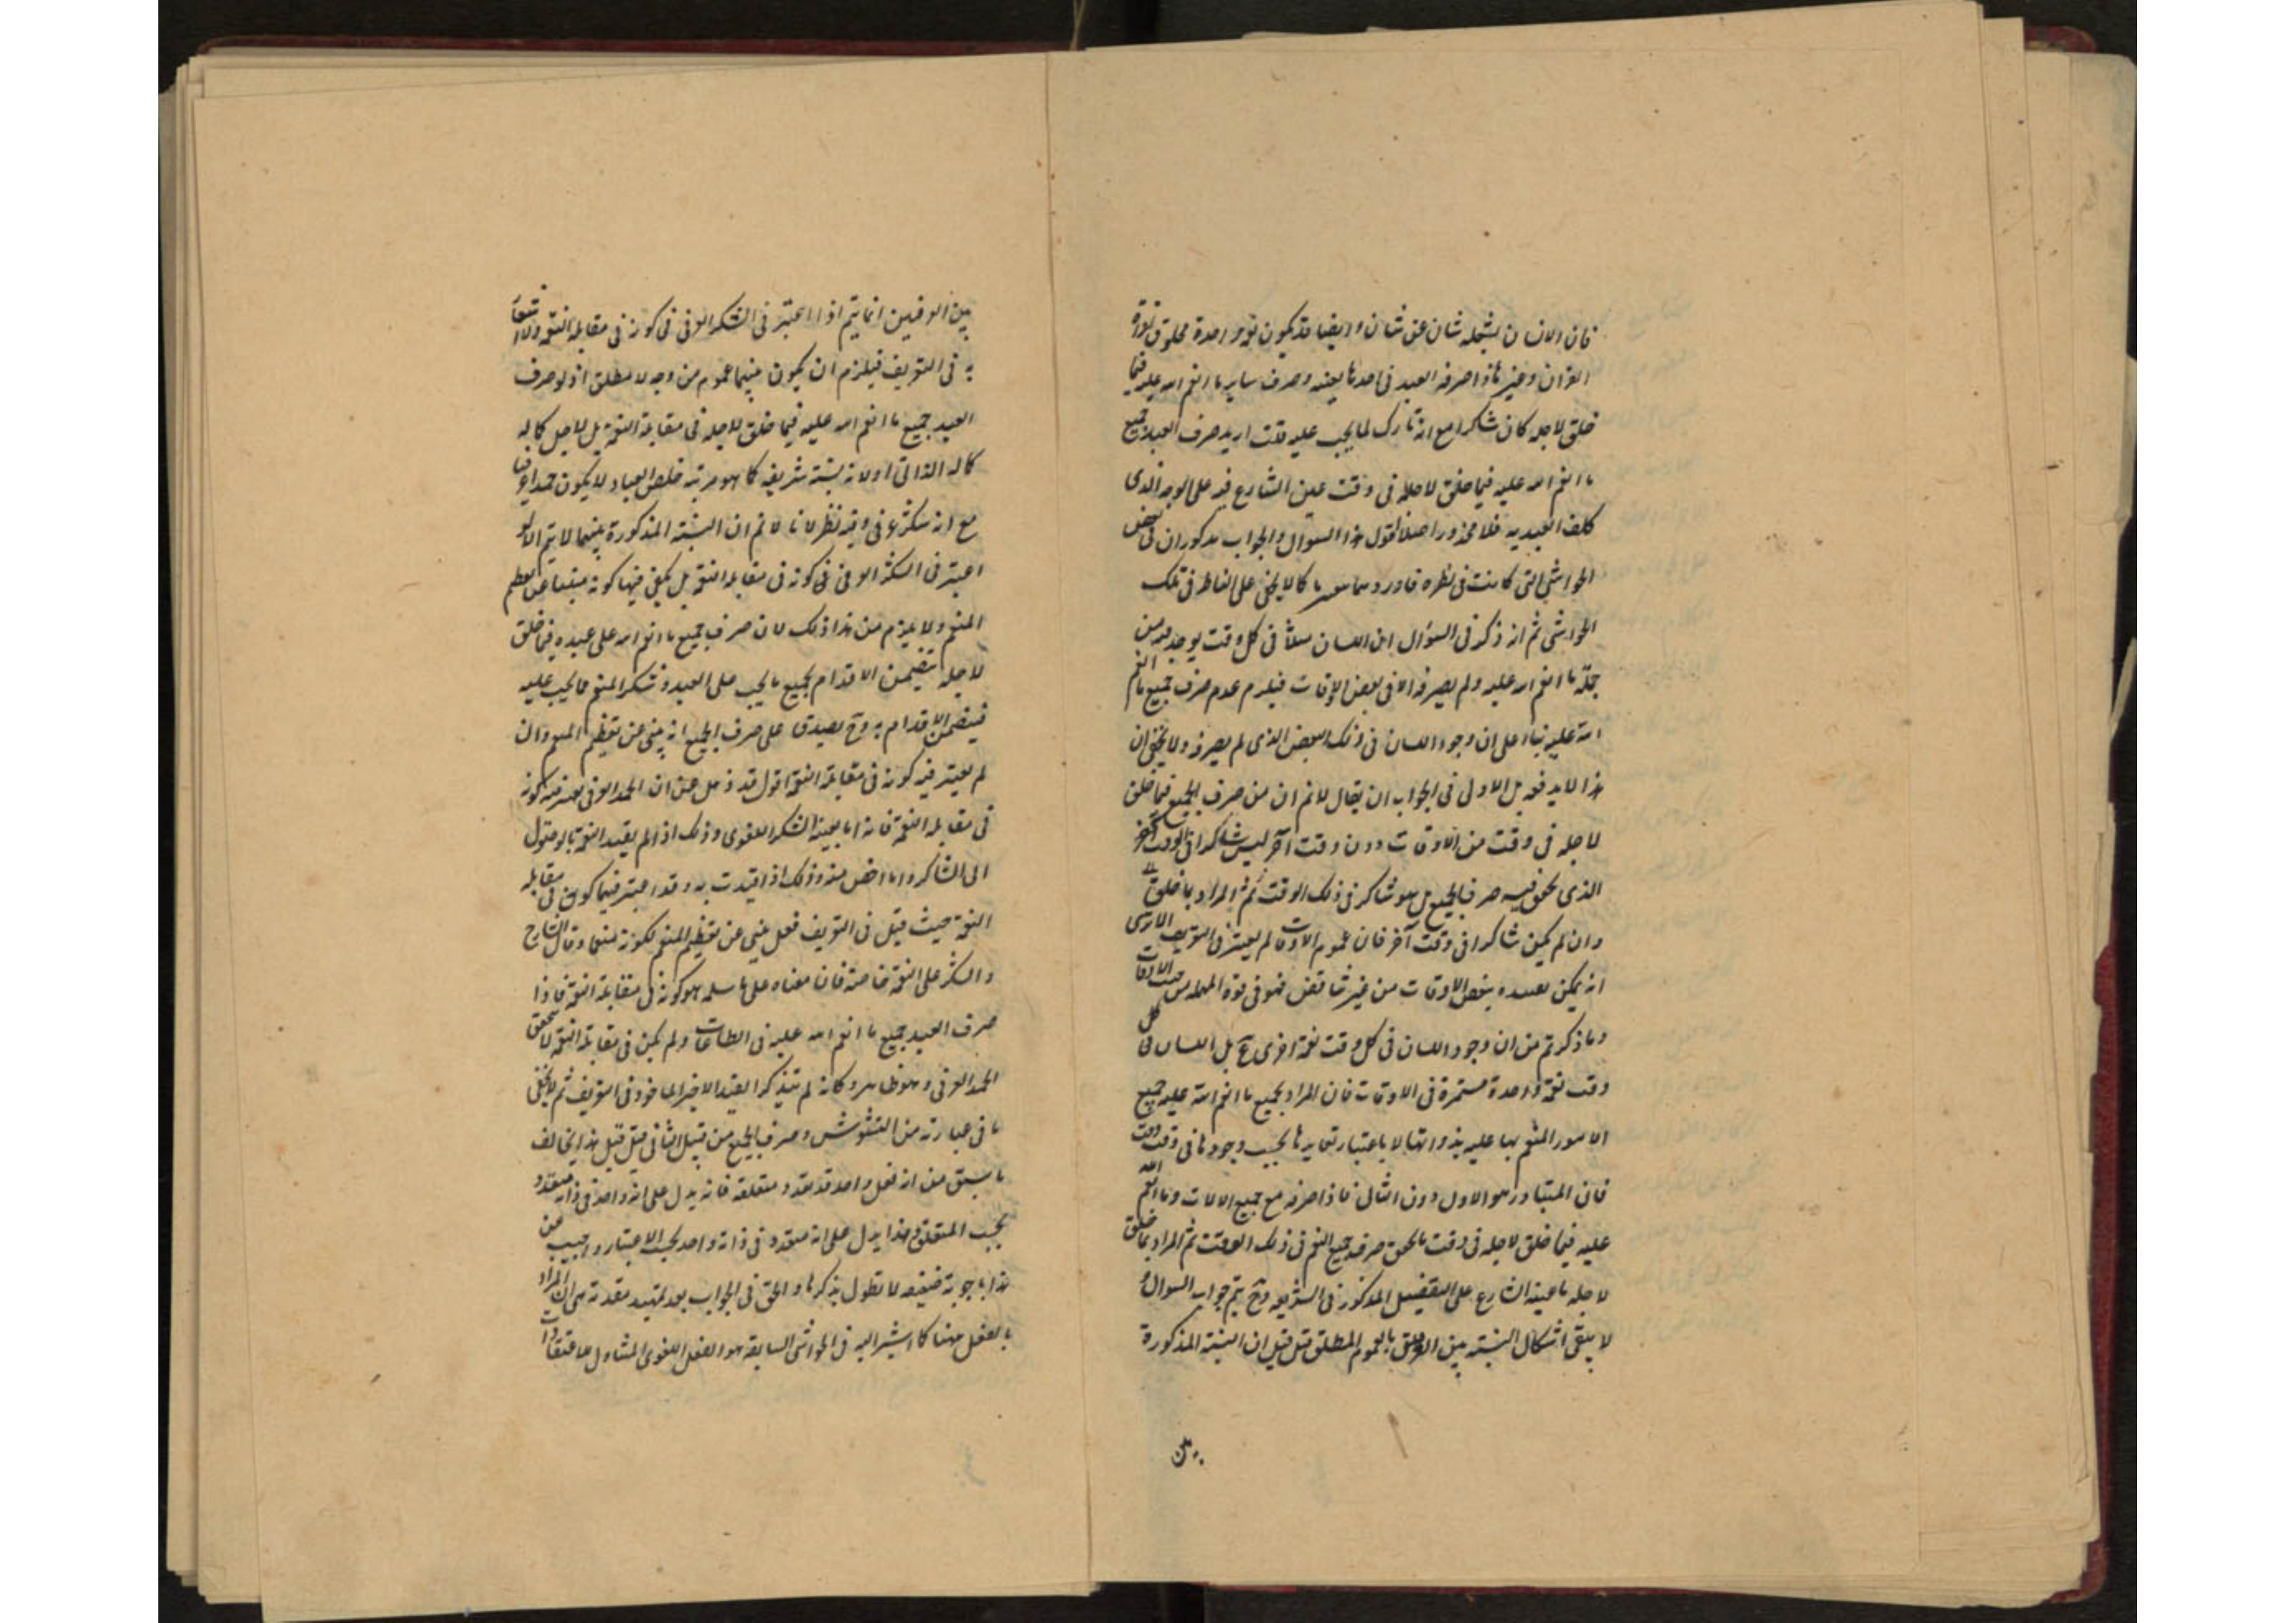 فان الانسان لا يشغله شان عن شان وايضا قد يكون نعمة واحدة مخلوقة لقراءة
القران وغيرها فاذا صرفه العبد فى احدها بعينه وصرف ساير ما انعم الله عليه فيما
خلق لاجله كان شاكرا مع انه تارك لما يجب عليه قلت اريد صرف العبد جميع
ما انعم الله عليه فيما خلق لاجله فى وقت عين الشارع فيه على الوجه الذى
كلف العبد به فلا محذور اصلا اقول هذا السوال والجواب مذكوران فى بعض
الحواشى التى كانت فى نظره فاوردهما كما لا يخفى على الناظر فى تلك
الحواشى ثم انه ذكر فى السؤال ان اللسان مثلا فى كل وقت يوجد من
جملة ما انعم الله عليه ولم يصرفه الا فى بعض الاوقات فيلزم عدم صرف جميع ما انعم
الله عليه بناء على ان وجود اللسان فى ذلك البعض الذى لم يصرفه ولا يخفى ان
هذا لا يدفعه بل الاولى فى الجواب ان يقال لا نم ان من صرف الجميع فيما خلق
لاجله فى وقت من الاوقات دون وقت آخر ليس شاكرا فى الوقت
الذى تحقق فيه صرف الجميع بل هو شاكر فى ذلك الوقت ثم المراد بما خلق
وان لم يكن شاكرا فى وقت آخر فان عموم الاوقات لم يعتبر فى التعريف الا ترى
انه يمكن تقييده ببعض الاوقات من غير تناقض فهو فى قوة المهملة من حيث الاوقات
وما ذكرتم من ان وجود اللسان فى كل وقت نعمة اخرى مح بل اللسان فى كل
وقت نعمة واحدة مستمرة فى الاوقات فان المراد بجميع ما انعم الله عليه جميع
الامور المنعم بها عليه بذواتها لا باعتبار تغايرها بحسب وجودها فى وقت وقت
فان المتبادر هو الاول دون الثانى فاذا صرفه مع جميع الالات وما انعم الله
عليه فيما خلق لاجله فى وقت ما تحقق صرف جميع النعم فى ذلك الوقت ثم المراد بما خلق
لاجله ما عينه الشارع على التفصيل المذكور فى الشريعة وح يتم جواب السوال و
لا يبقى اشكال النسبة بين العرفيين بالعموم المطلق قيل ان النسبة المذكورة
بين العرفيين انما يتم اذا اعتبر فى الشكر العرفى كونه فى مقابلة النعمة ولا اشعار
به فى التعريف فيلزم ان يكون بينهما عموم من وجه لا مطلق اذ لو صرف
العبد جميع ما انعم الله عليه فيما خلق لاجله لا فى مقابلة النعمة بل لاجل كماله
كماله الذاتى او لانه نسبة شريفة كما هو مرتبة خلص العباد لا يكون حمدا عرفيا
مع انه شكر عرفى وفيه نظر لانا لا نم ان النسبة المذكورة بينهما لا يتم الا لو
اعتبر فى الشكر العرفى كونه فى مقابلة النعمة بل يكفى فيها كونه منبئا عن تعظيم
المنعم ولا يلزم من هذا ذلك لان صرف جميع ما انعم الله على عبده فيما خلق
لاجله يتضمن الاقدام بجميع ما يجب على العبد وشكر المنعم مما يجب عليه
فيتضمن الاقدام به وح يصدق على صرف الجميع انه ينبئ عن تعظيم المنعم وان
لم يعتبر فيه كونه فى مقابلة النعمة اقول قد ذهل عن ان الحمد العرفى يعتبر فيه كونه
فى مقابلة النعمة فانه اما بعينه الشكر اللغوى وذلك اذا لم يقيد النعمة بالوصول
الى الشاكر واما اخص منه وذلك اذا قيدت به وقد اعتبر فيهما كونه فى مقابلة
النعمة حيث قيل فى التعريف فعل ينبئ عن تعظيم المنعم لكونه منعما وقال الشارح
والشكر على النعمة خاصة فان معناه على ما سلمه هو كونه فى مقابلة النعمة فاذا
صرف العبد جميع ما انعم الله عليه فى الطاعات ولم يكن فى مقابلة النعمة لا يتحقق
الحمد العرفى وهو ظاهر وكانه لم يتذكر القيد الاخير الماخوذ فى التعريف ثم لا يخفى
ما فى عبارته من التشويش وصرف الجميع من قبيل الثانى قيل قيل هذا يخالف
ما سبق من انه فعل واحد قد تعدد متعلقه فانه يدل على انه واحد فى ذاته متعدد
بحسب المتعلق وهذا يدل على انه متعدد فى ذاته واحد بحسب الاعتبار واجيب عن
هذا باجوبة ضعيفة لا نطول بذكرها والحق فى الجواب بعد تمهيد مقدمة هى ان المراد
بالفعل ههنا كما اشير اليه فى الحواشى السابقة هو الفعل اللغوى المتناول للاعتقادات